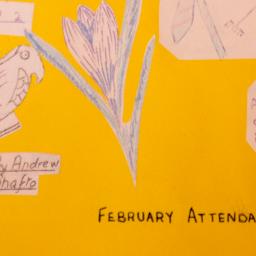 2
By Andrew
Shafto
FEBRUARY ATTENDA